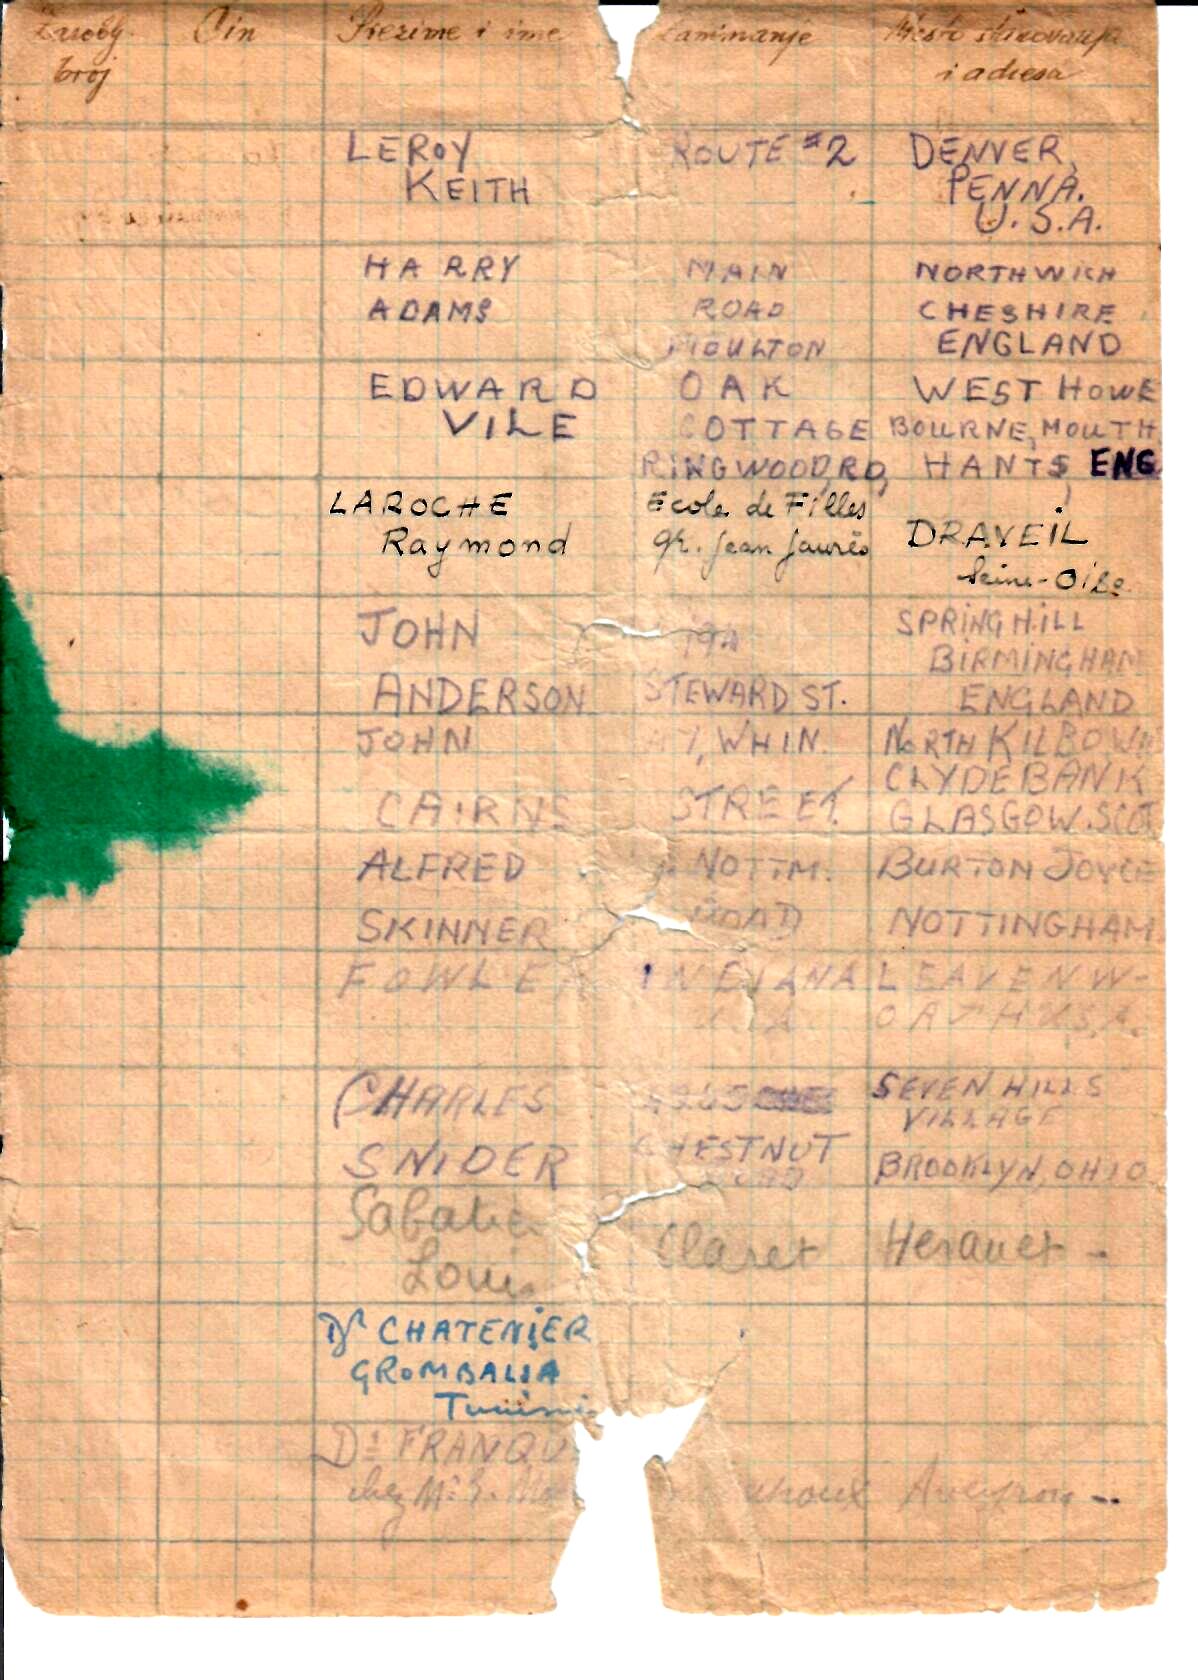 Zaroblj. Čin Prezime i ime Zanimanje Mesto stanovanja
broj i adresa
LEROY ROUTE #2 DENVER,
KEITH PENNA.
U.S.A.
HARRY MAIN NORTHWICH
ADAMS ROAD CHESHIRE
MOULTON ENGLAND
EDWARD OAK WEST HOWE
VILE COTTAGE BOURNE,MOUTH
RINGWOOD,RD, HANTS ENG
LAROCHE Ecole de Filles
Raymond gr. Jean Jaurès DRAVEIL
Seine-Oise
JOHN SPRING HILL
BIRMINGHAM
ANDERSON STEWARD ST. ENGLAND
JOHN 7, WHIN NORTH KILBOWIE
CLYDEBANK
CAIRNS STREET. GLASGOW.SCOT
ALFRED NOTTM. BURTON JOYCE
SKINNER ROAD NOTTINGHAM
FOWLE INDIANA LEAVENW-
U.S.A.
CHARLES SEVEN HILLS
VILLAGE
CHESTNUT
SNIDER ROAD BROOKLYN, OHIO
Sabatier
Claret Herault -
Louis
Dr CHATENIER
GROMBALIA
Tunisie
Dr FRANQU
chez Mr Aveyron --